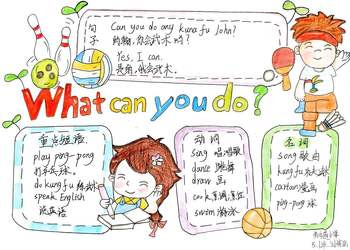 句子
Can you do any kung fu John?
约翰,你会武术吗?
Yes, I can.
是的,我会武术。
What can you do?
重点短语
play ping-pong
打乒乓球。
do kung fu 练武术
speak English
说英语
动词
song 唱唱歌
dance 跳舞
draw 画
cook 烹调,烹饪
swim 游泳
名词
song 歌曲
kung fu 武术
cartoon 漫画
ping-pong 球